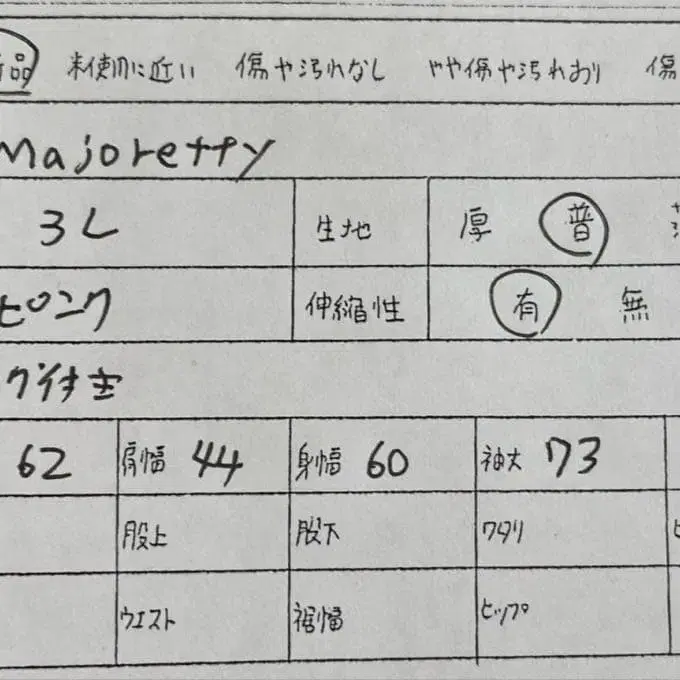 品 未使用に近い 傷や汚れなし やや傷や汚れあり 傷
Majoretty
3L 生地 厚 普
ピンク 伸縮性 有 無
グ付き
62 肩幅 44 身幅 60 袖丈 73
股上 股下 ワタリ
ウエスト 裾幅 ヒップ